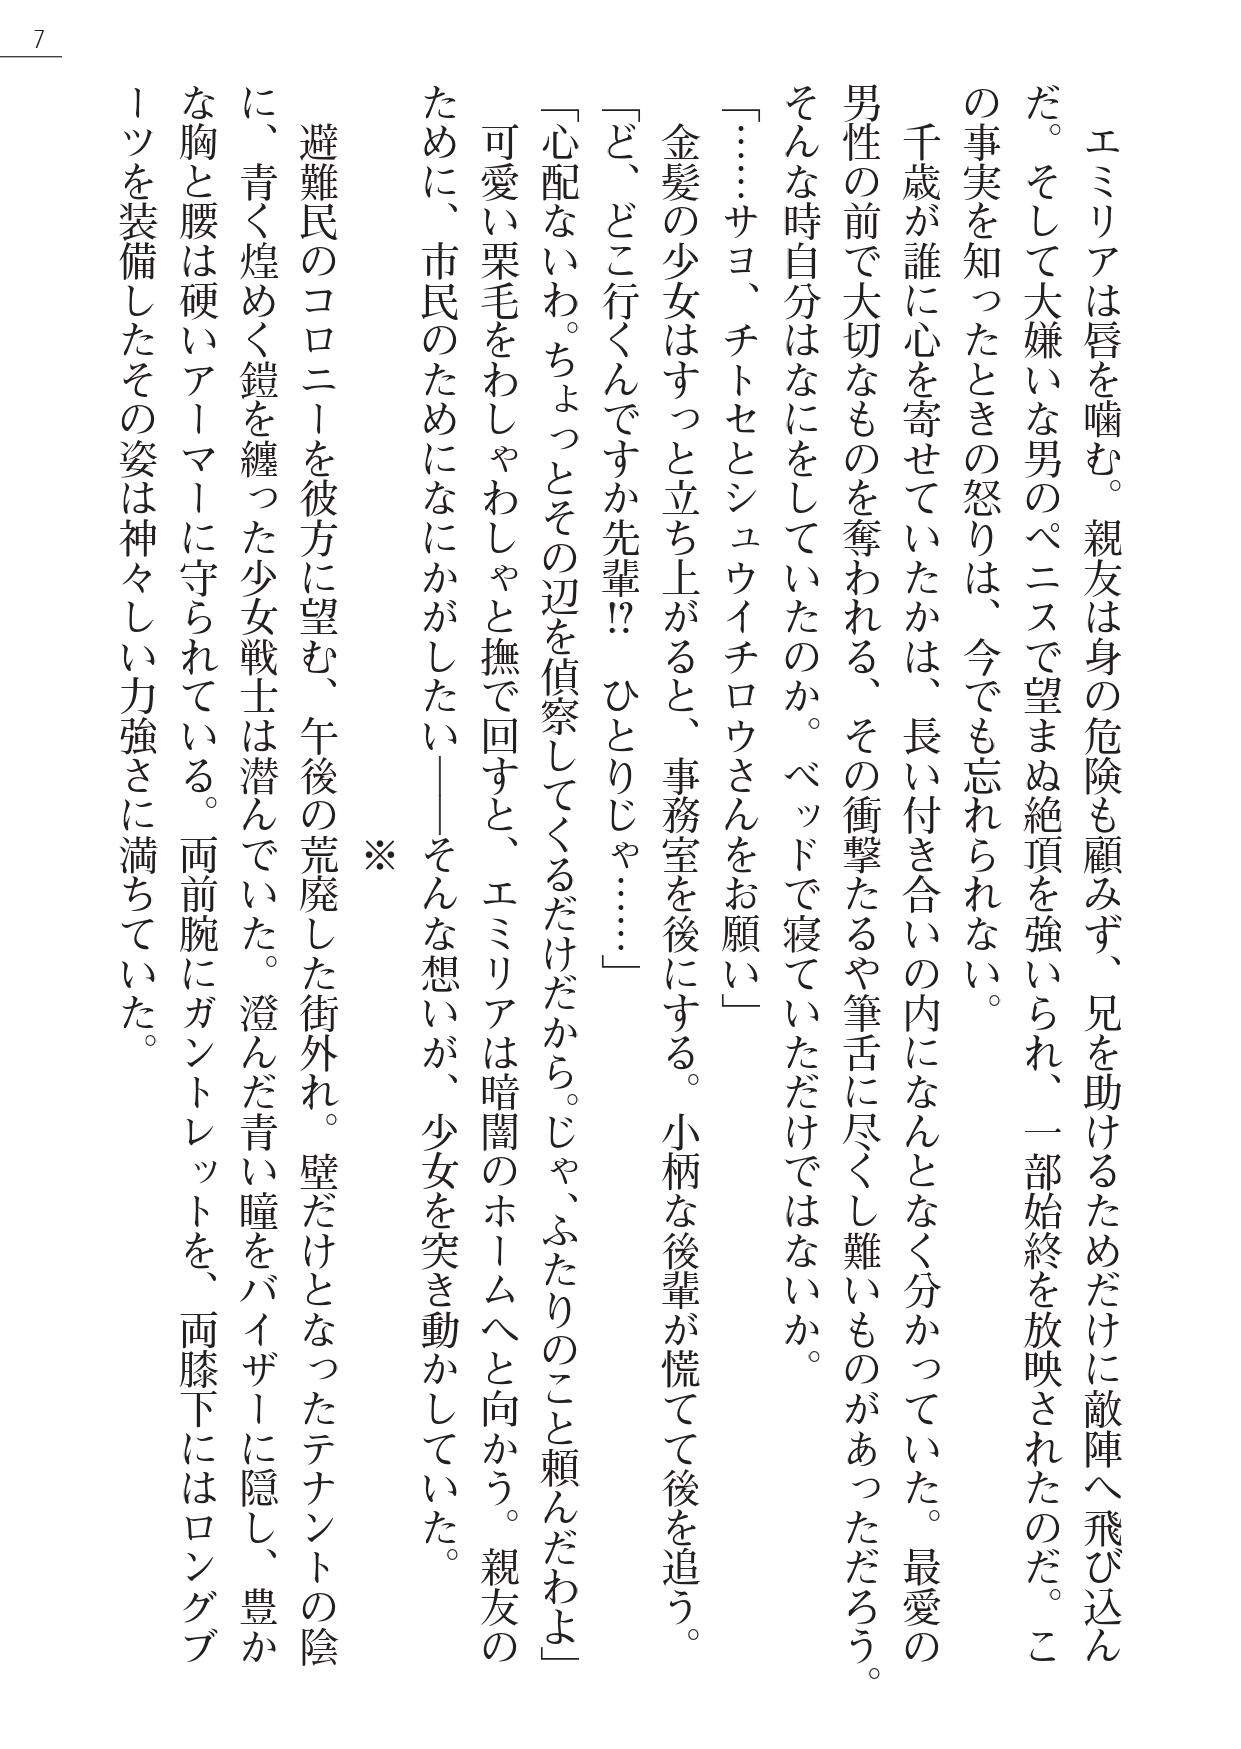 7
　エミリアは唇を噛む。親友は身の危険も顧みず、兄を助けるためだけに敵陣へ飛び込ん
だ。そして大嫌いな男のペニスで望まぬ絶頂を強いられ、一部始終を放映されたのだ。こ
の事実を知ったときの怒りは、今でも忘れられない。
　千歳が誰に心を寄せていたかは、長い付き合いの内になんとなく分かっていた。最愛の
男性の前で大切なものを奪われる、その衝撃たるや筆舌に尽くし難いものがあっただろう。
そんな時自分はなにをしていたのか。ベッドで寝ていただけではないか。
「……サヨ、チトセとシュウイチロウさんをお願い」
　金髪の少女はすっと立ち上がると、事務室を後にする。小柄な後輩が慌てて後を追う。
「ど、どこ行くんですか先輩!?　ひとりじゃ……」
「心配ないわ。ちょっとその辺を偵察してくるだけだから。じゃ、ふたりのこと頼んだわよ」
　可愛い栗毛をわしゃわしゃと撫で回すと、エミリアは暗闇のホームへと向かう。親友の
ために、市民のためになにかがしたい――そんな想いが、少女を突き動かしていた。
※
　避難民のコロニーを彼方に望む、午後の荒廃した街外れ。壁だけとなったテナントの陰
に、青く煌めく鎧を纏った少女戦士は潜んでいた。澄んだ青い瞳をバイザーに隠し、豊か
な胸と腰は硬いアーマーに守られている。両前腕にガントレットを、両膝下にはロングブ
ーツを装備したその姿は神々しい力強さに満ちていた。